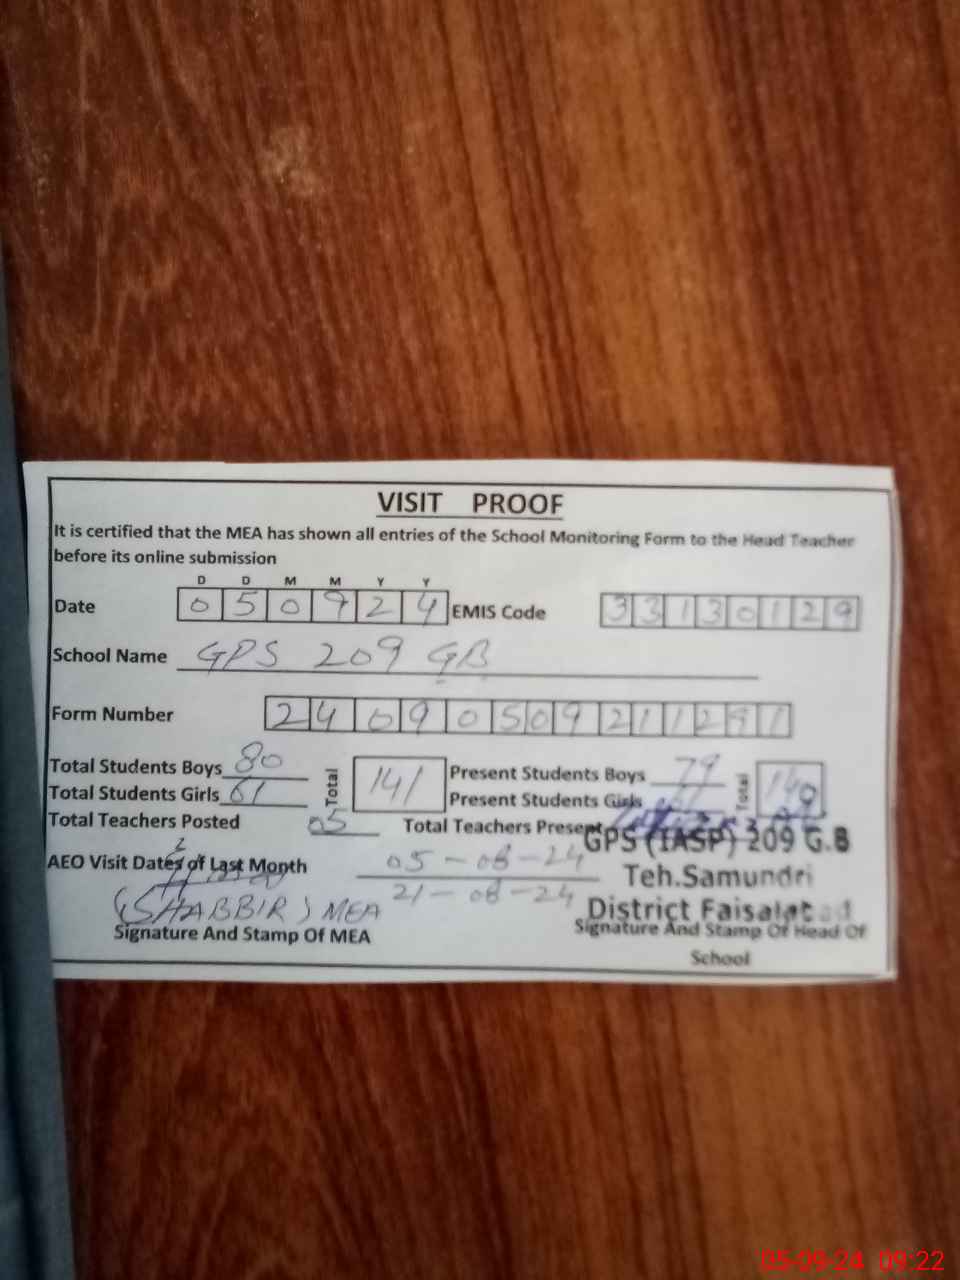 VISIT PROOF
It is certified that the MEA has shown all entries of the School Monitoring Form to the Head Teacher
before its online submission
D D M M Y Y
Date 0 5 0 9 2 4 EMIS Code 3 3 1 3 0 1 2 9
School Name GPS 209 GB
Form Number 2 4 0 9 0 5 0 9 2 1 1 2 9 1
Total Students Boys 80 Total 141 Present Students Boys 79 Total 140
Total Students Girls 61 Present Students Girls
Total Teachers Posted 05 Total Teachers Present
GPS (IASP) 209 G.B
AEO Visit Dates of Last Month 2 05-08-24
Teh.Samundri
21-08-24
(SHABBIR) MEA District Faisalabad
Signature And Stamp Of MEA Signature And Stamp Of Head Of
School
05-09-24 09:22